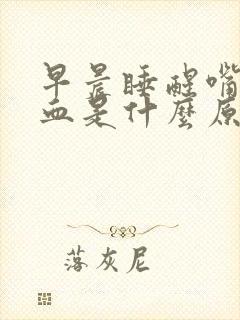 早晨睡醒嘴
血是什麼原
落灰尼